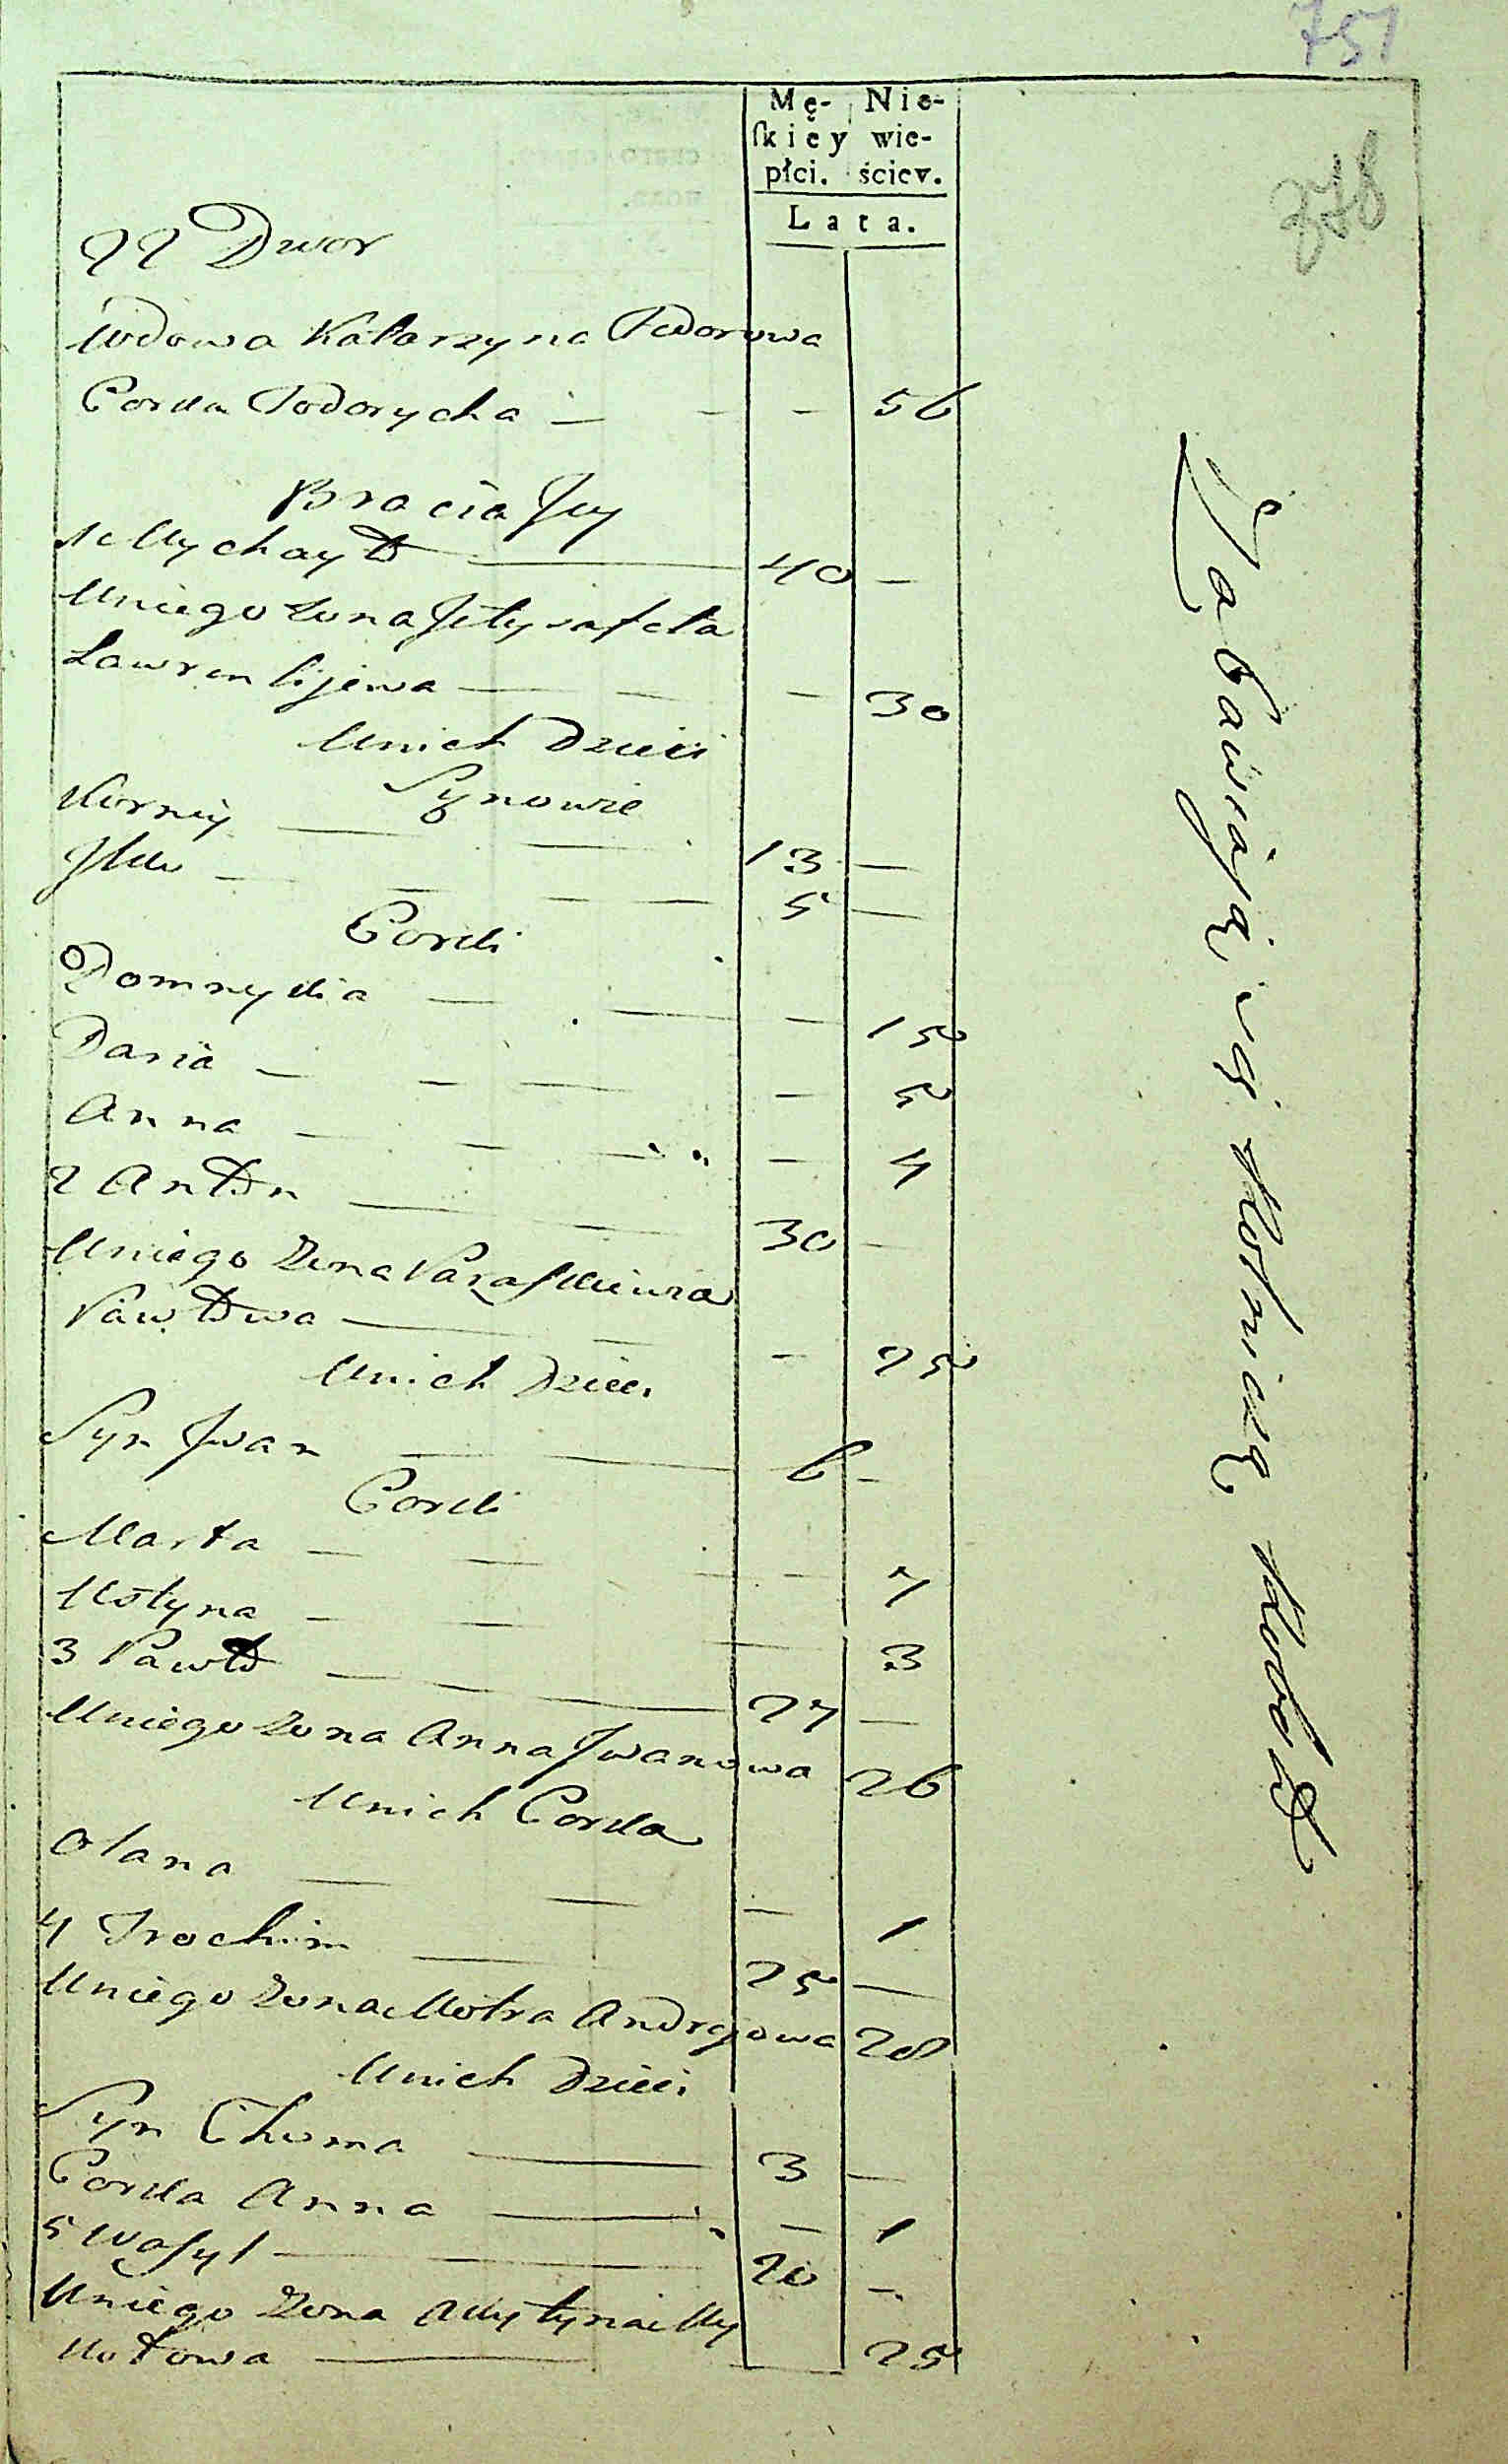 751
278
Mę- Nie-
skiey wie-
płci. ściey.
Lata.
22 Dwor
Wdowa Katarzyna Fedorowa
Corka Fedorycha — — — 56
Bracia Jey
1 Mychayło — 40 —
Uniego Zona Jelysafeta
Lawrentijewa — — — 30
Unich Dzieci
Synowie
Korniy — — 13 —
Jlko — — — — 5 —
Corki
Domnykia — — — 15
Daria — — — — 5
Anna — — — — 4
2 Anton — — 30 —
Uniego Zona Paraskiewia
Pawłowa — — — 25
Unich Dzieci
Syn Jwan — 6 —
Corki
Marta — — — 7
Ustyna — — — 3
3 Pawło — — 27 —
Uniego Zona Anna Jwanowa 26
Unich Corka
Olana — — — 1
4 Trochim — 25 —
Uniego Zona Motra Andrejowa 28
Unich Dzieci
Syn Choma — 3 —
Corka Anna — — 1
5 Wasyl — — 20 —
Uniego Zona Akylyna My
kołowa — 25
Zabawiają się Rolnictwem